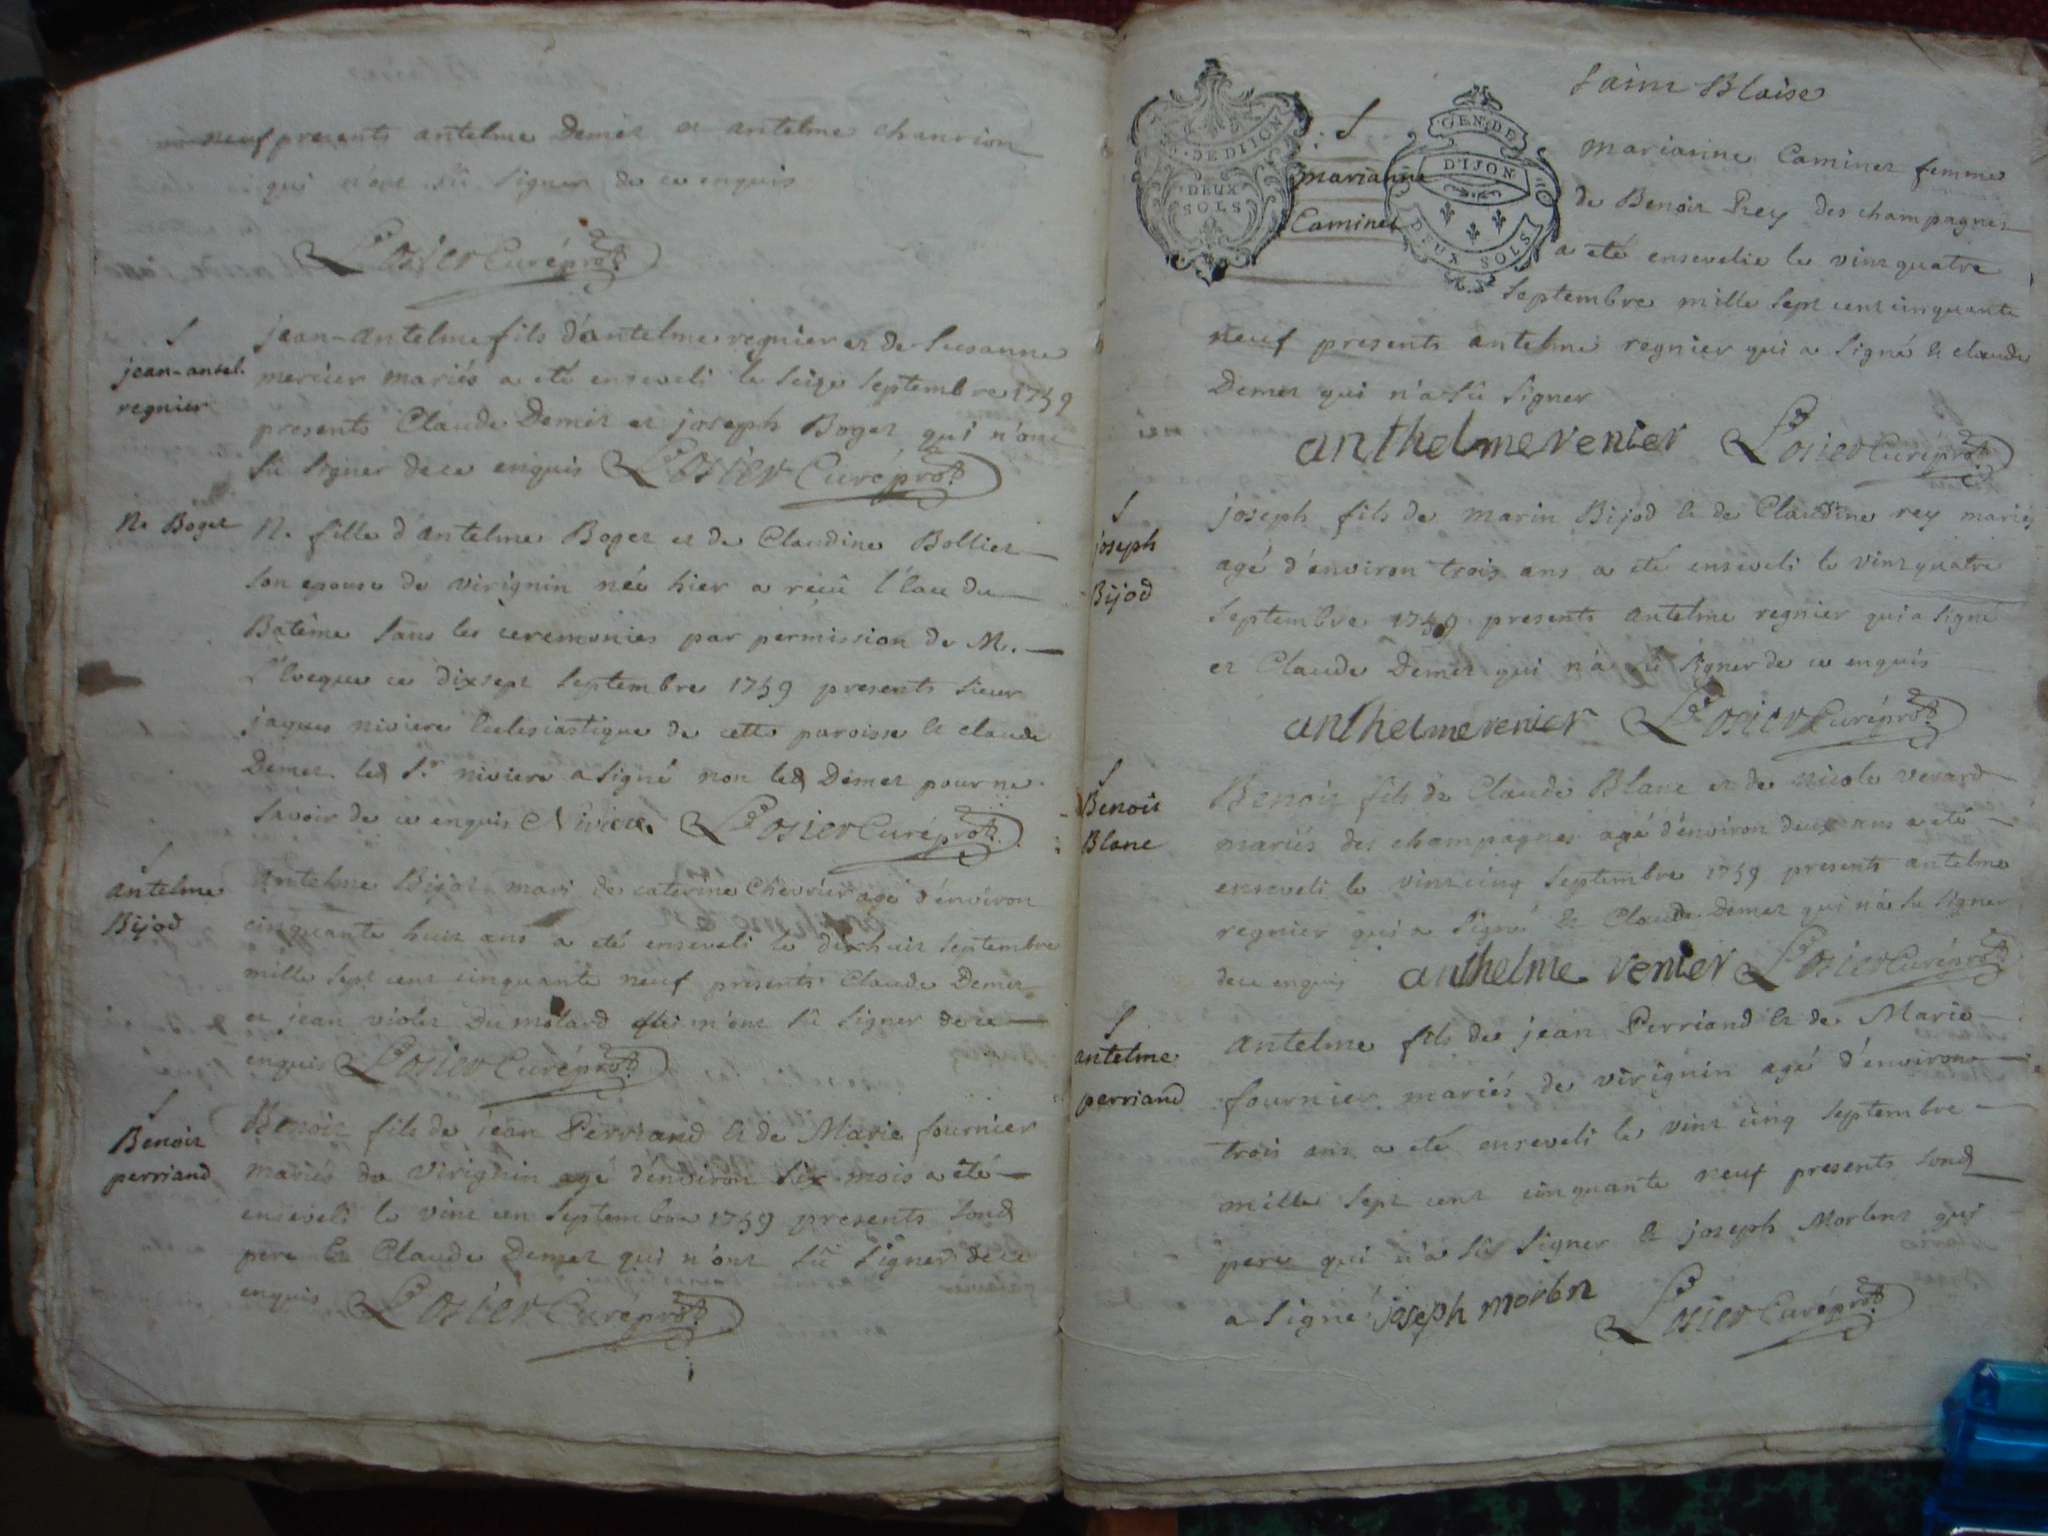 neuf presents antelme Demer et antelme chanrion
qui n'ont sû signer de ce enquis
Losier Curé
S
jean-antel.
regnier
jean-antelme fils d'antelme regnier et de Susanne
mercier mariés a eté enseveli le seize septembre 1759
presents Claude Demer et joseph Boget qui n'ont
sû signer de ce enquis Losier Curé
N. Boget
N. fille d'antelme Boget et de Claudine Bollier
son epouse de virignin née hier a reçû l'Eau du
Batême sans les ceremonies par permission de M.
L'Eveque ce dixsept septembre 1759 presents sieur
jaques niviere Eclesiastique de cette paroisse & claude
Demer led Sr niviere a signé non led Demer pour ne
savoir de ce enquis Niviere Losier Curé
S
antelme
Bijod
antelme Bijod mari de caterine Chevrier agé d'environ
cinquante huit ans a eté enseveli le dixhuit septembre
mille sept cent cinquante neuf presents Claude Demer
et jean violet Du molard qui n'ont sû signer de ce
enquis Losier Curé
S
Benoit
perriand
Benoit fils de jean Perriand & de Marie fournier
mariés de virignin agé d'environ six mois a eté
enseveli le vint un septembre 1759 presents sond
pere & Claude Demer qui n'ont sû signer de ce
enquis Losier Curé
Saint Blaise
DE DIJON
DEUX
SOLS
GEN. DE
DIJON
DEUX SOLS
S
marianne
Caminet
marianne Caminet femme
de Benoit Rey des champagnes
a eté ensevelie le vint quatre
septembre mille sept cent cinquante
neuf presents antelme regnier qui a signé & claude
Demer qui n'a sû signer
anthelme renier Losier Curé
S
joseph
Bijod
joseph fils de marin Bijod & de Claudine rey mariés
agé d'environ trois ans a eté enseveli le vint quatre
septembre 1759 presents antelme regnier qui a signé
et Claude Demer qui n'a sû signer de ce enquis
anthelme renier Losier Curé
S
Benoit
Blanc
Benoit fils de Claude Blanc et de nicole verard
mariés des champagnes agé d'environ deux ans a eté
enseveli le vint cinq septembre 1759 presents antelme
regnier qui a signé & Claude Demer qui n'a su signer
de ce enquis anthelme renier Losier Curé
S
antelme
perriand
antelme fils de jean Perriand & de Marie
fournier mariés de virignin agé d'environ
trois ans a eté enseveli le vint cinq septembre
mille sept cent cinquante neuf presents sond
pere qui n'a sû signer & joseph Morlent qui
a signé joseph morln Losier Curé